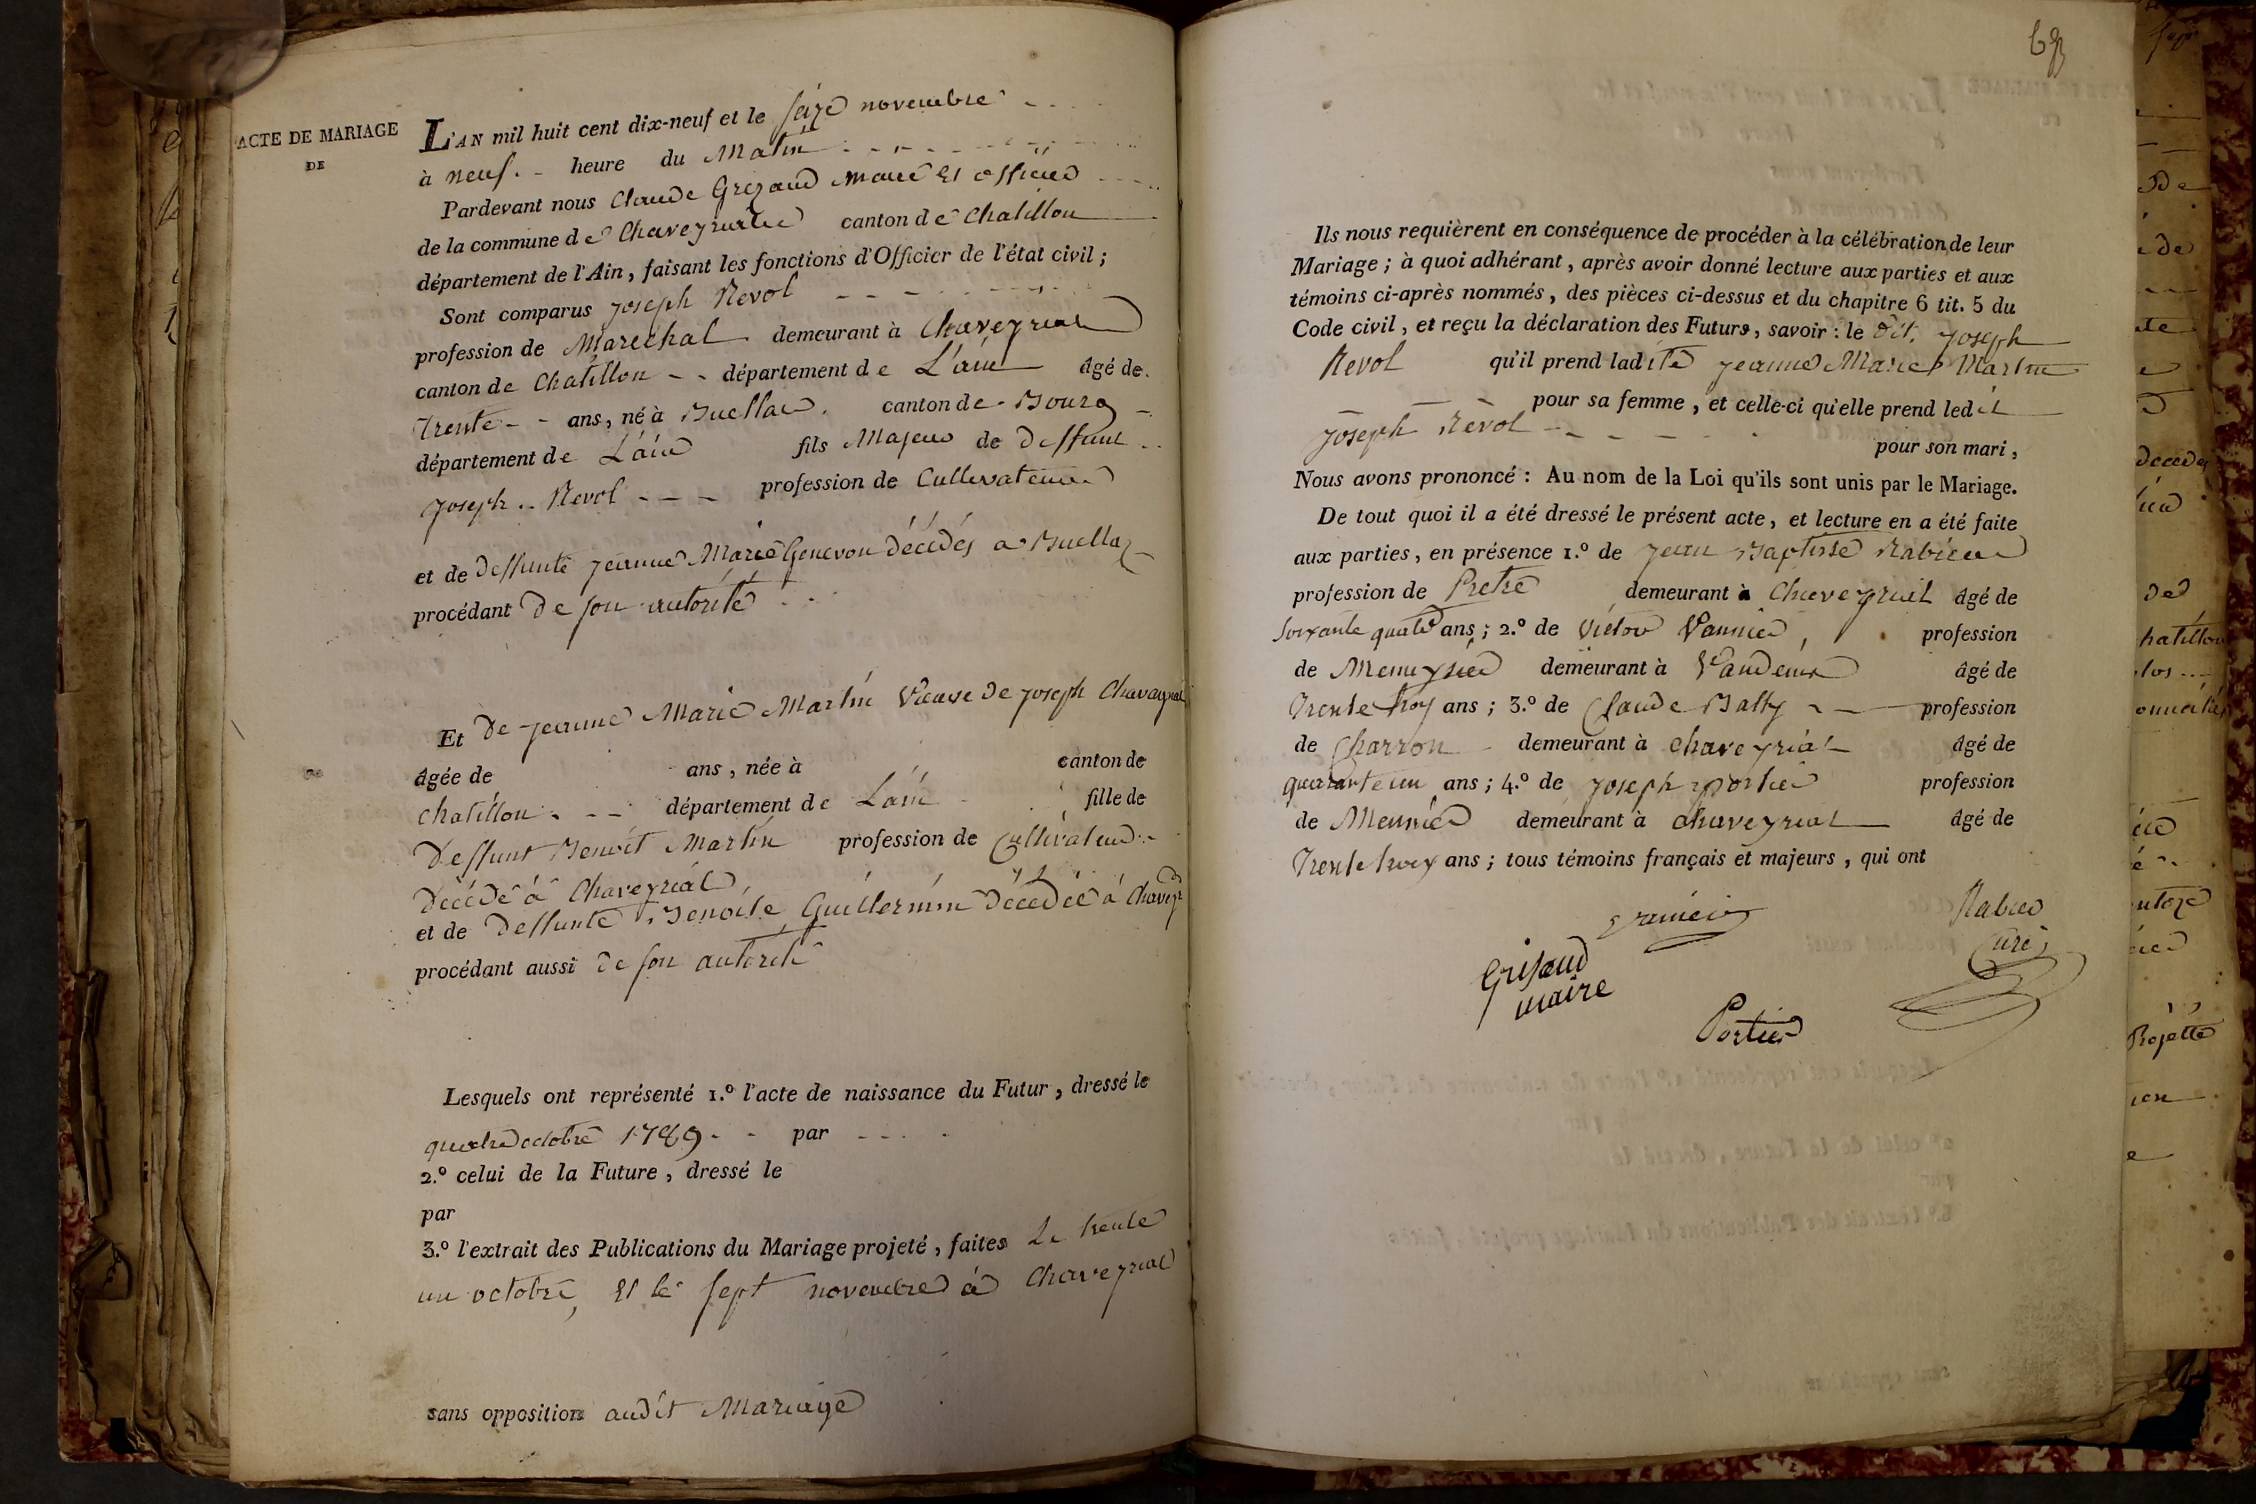 ACTE DE MARIAGE
DE
L'AN mil huit cent dix-neuf et le seize novembre
à neuf heure du Matin
Pardevant nous Claude Grezaud maire Et officier
de la commune de Chaveyriat canton de Chatillon
département de l'Ain, faisant les fonctions d'Officier de l'état civil ;
Sont comparus joseph Revol
profession de Marechal demeurant à Chaveyriat
canton de Chatillon département de L'ain âgé de
Trente ans, né à Buellas canton de Bourg
département de L'ain fils Majeur de deffunt
joseph Revol profession de Cultivateur
et de deffunte jeanne Marie Genevon décédés a Buellaz
procédant de son autorité
Et de jeanne Marie Martin Veuve de joseph Chavagnat
âgée de ans, née à canton de
chatillon département de L'ain fille de
Deffunt Benoit Martin profession de Cultivateur
Décédé à Chaveyriat
et de Deffunte Benoite Guillermin Décédée à Chaveyr
procédant aussi de son autorité
Lesquels ont représenté 1.º l'acte de naissance du Futur, dressé le
quatre octobre 1789 par
2.º celui de la Future, dressé le
par
3.º l'extrait des Publications du Mariage projeté, faites Le trente
un octobre, Et le sept novembre à Chaveyriat
sans opposition audit Mariage
Ils nous requièrent en conséquence de procéder à la célébration de leur
Mariage ; à quoi adhérant, après avoir donné lecture aux parties et aux
témoins ci-après nommés, des pièces ci-dessus et du chapitre 6 tit. 5 du
Code civil, et reçu la déclaration des Futurs, savoir : le dit. joseph
Revol qu'il prend ladite jeanne Marie Martin
pour sa femme, et celle-ci qu'elle prend ledit
joseph Revol
pour son mari,
Nous avons prononcé : Au nom de la Loi qu'ils sont unis par le Mariage.
De tout quoi il a été dressé le présent acte, et lecture en a été faite
aux parties, en présence 1.º de jean Baptiste Rabieu
profession de Pretre demeurant à Chaveyriat âgé de
soixante quatre ans ; 2.º de Victor Vannier, profession
de demeurant à Vandeins âgé de
Trente troy ans ; 3.º de Claude Batty profession
de Charron demeurant à chaveyriat âgé de
quarante un ans ; 4.º de joseph portier profession
de Meunier demeurant à chaveyriat âgé de
Trente troy ans ; tous témoins français et majeurs, qui ont
Vannier
Rabieu
Curé
Grisaud
maire
Portier